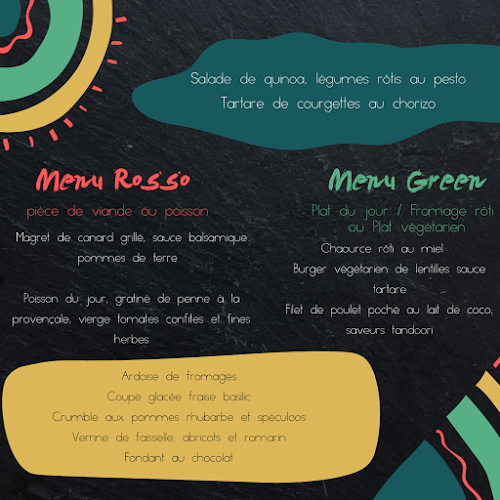 Salade de quinoa, légumes rôtis au pesto
Tartare de courgettes au chorizo
Menu Rosso
pièce de viande ou poisson
Magret de canard grillé, sauce balsamique
pommes de terre
Poisson du jour, gratiné de penne à la
provençale, vierge tomates confites et fines
herbes
Menu Green
Plat du jour / Fromage rôti
ou Plat végétarien
Chaource rôti au miel
Burger végétarien de lentilles sauce
tartare
Filet de poulet poché au lait de coco,
saveurs tandoori
Ardoise de fromages
Coupe glacée fraise basilic
Crumble aux pommes rhubarbe et spéculoos
Verrine de faisselle, abricots et romarin
Fondant au chocolat